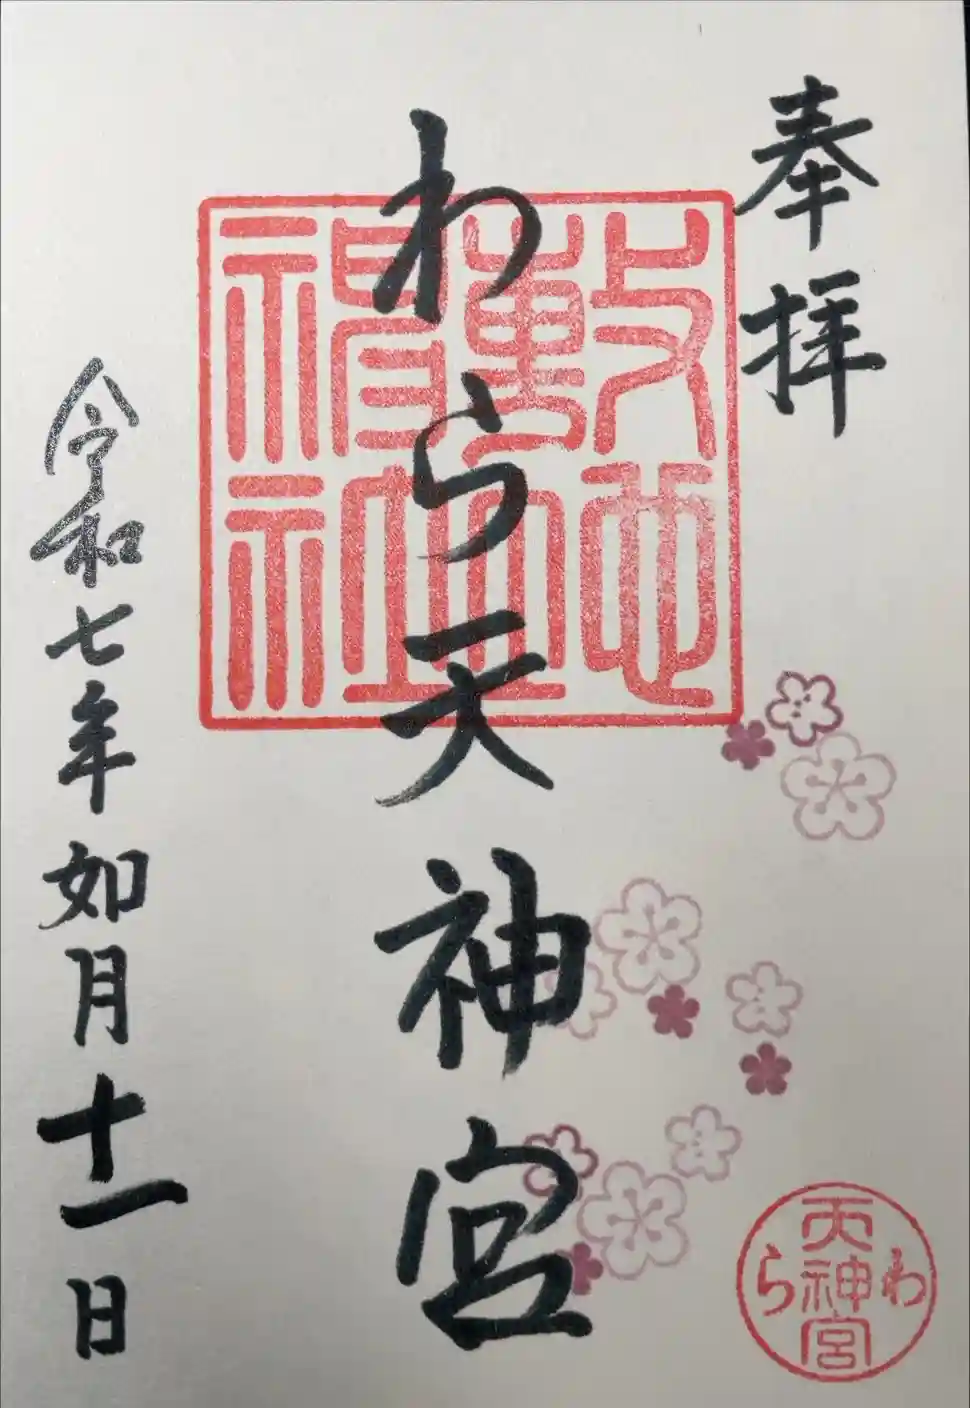 奉拝
わら天神宮
敷地神社
令和七年如月十一日
わら天神宮